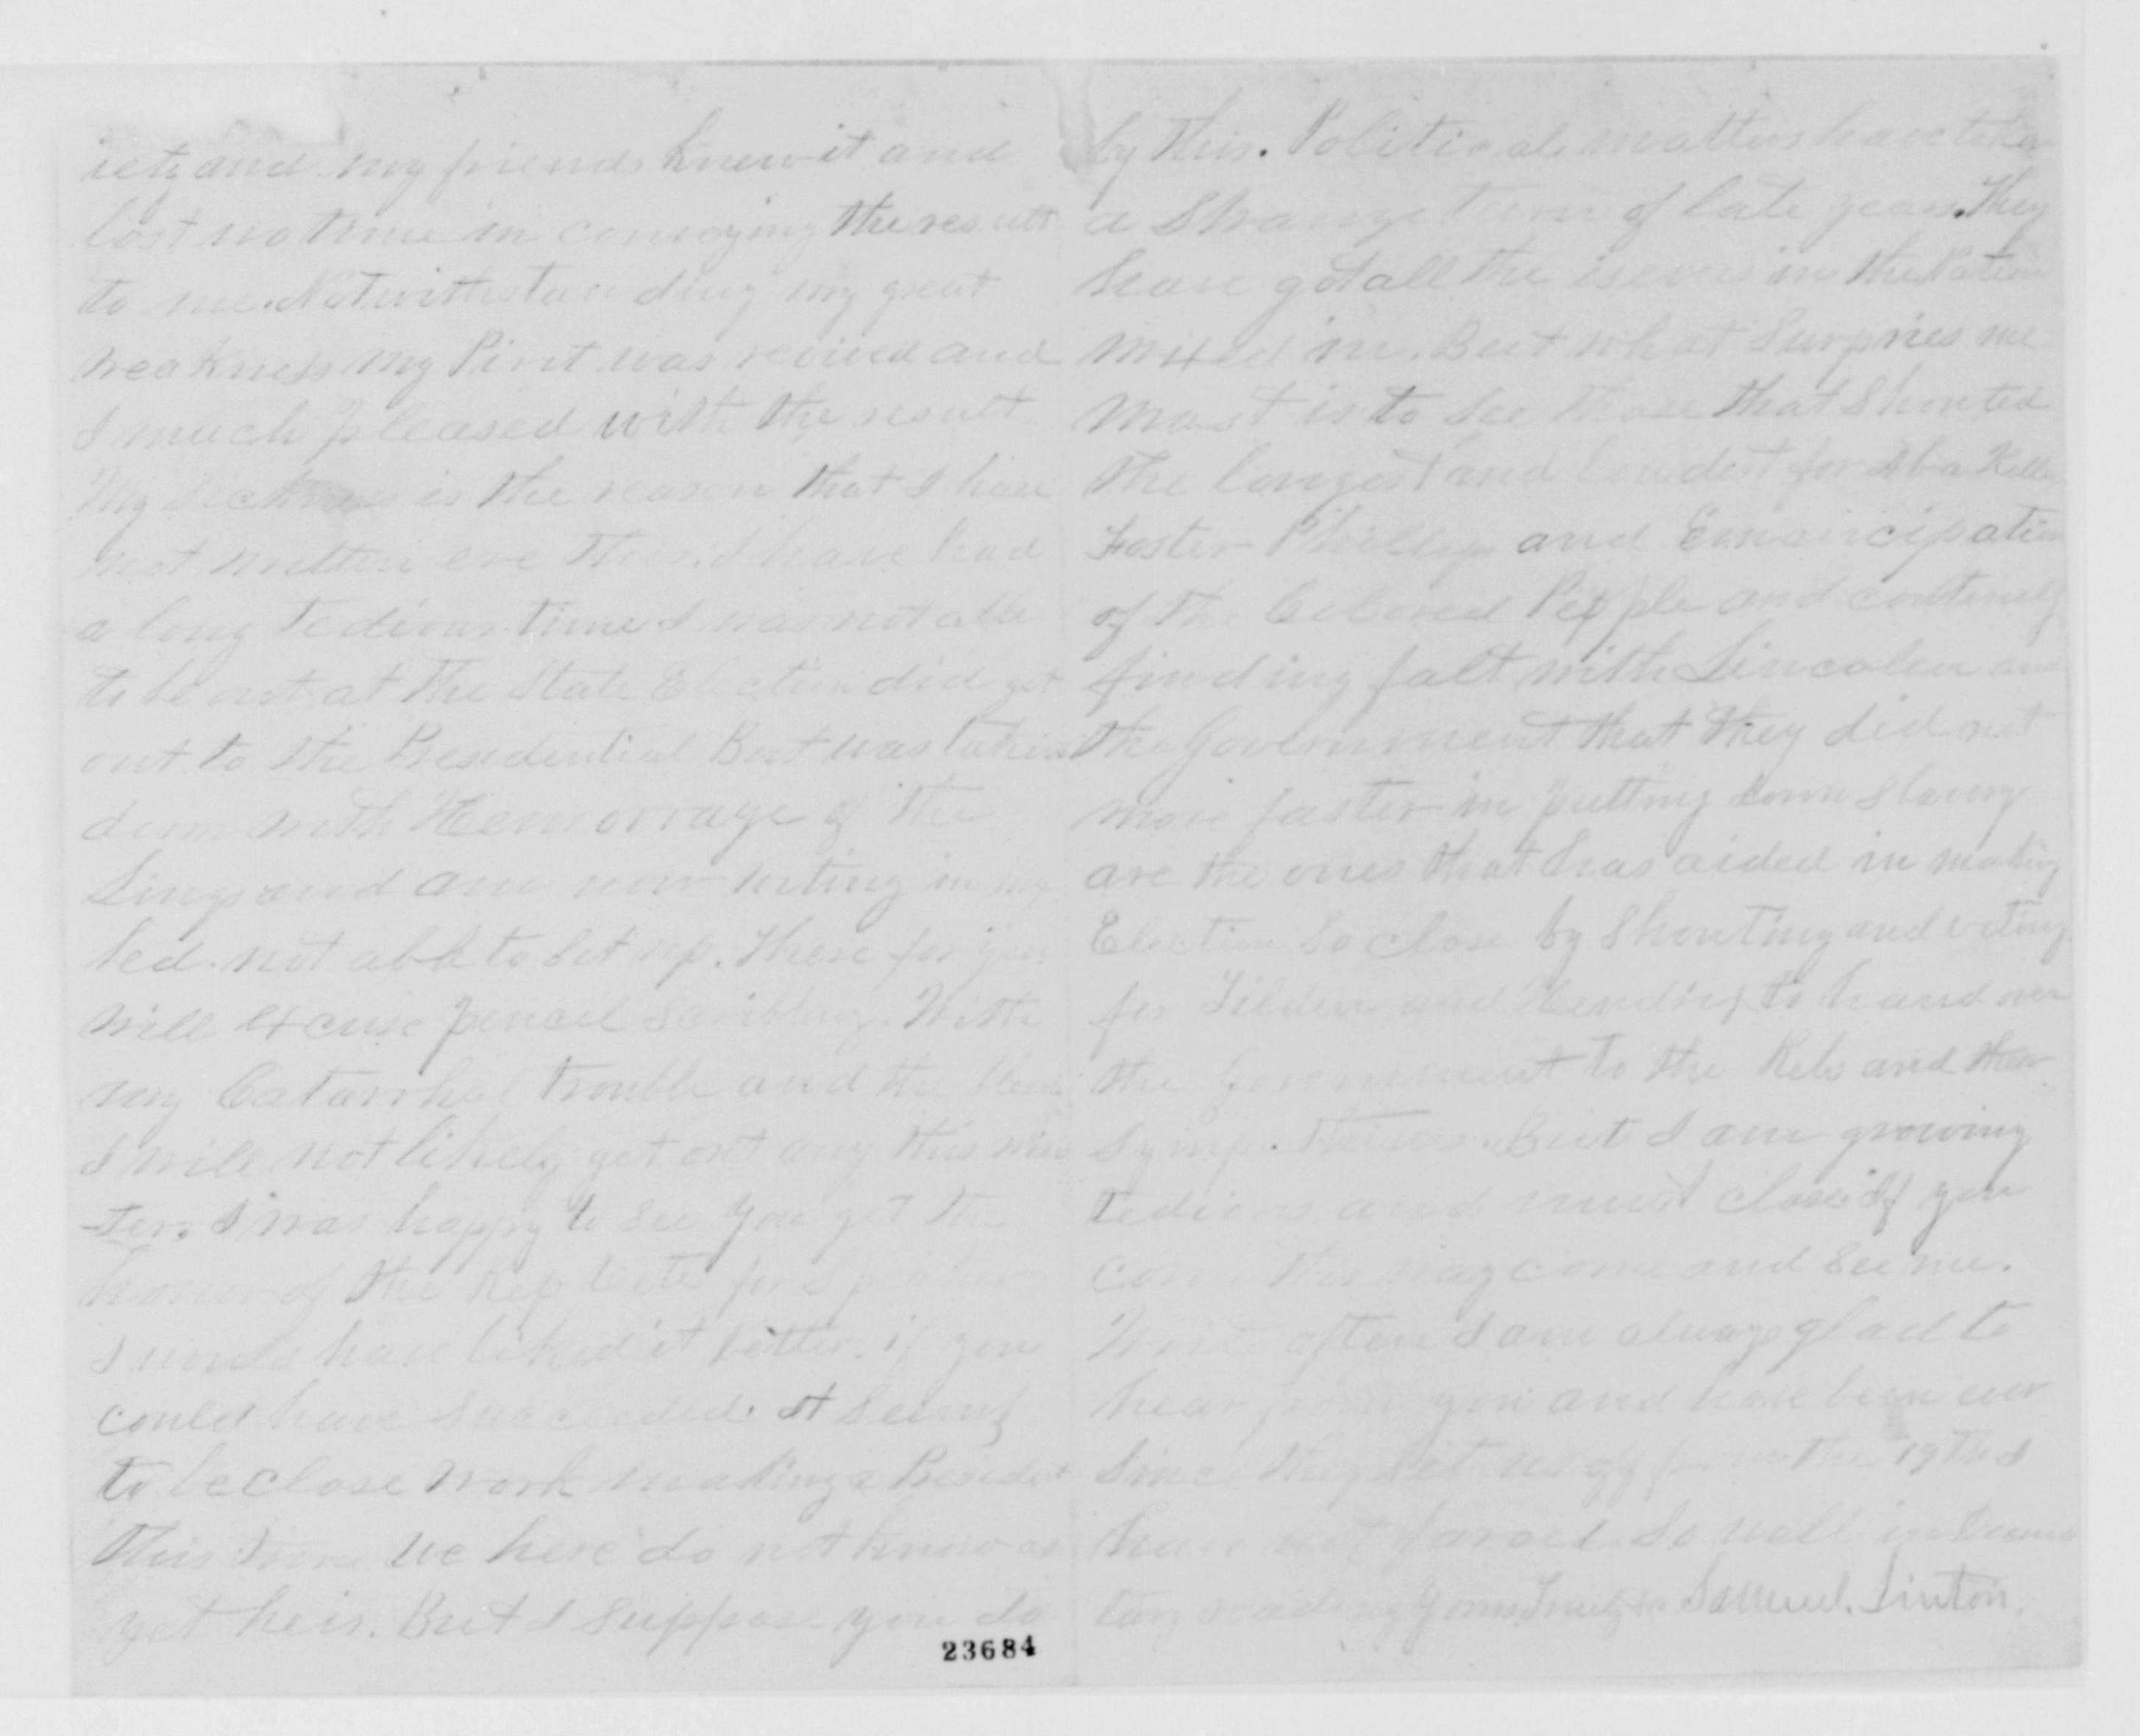 iety and my friends knew it and
lost no time in conveying the result
to me. Notwithstanding my great
weakness my Pirit was revived and
I much pleased with the result
My Sickness is the reason that I have
not written ere this. I have had
a long tedious time I was not able
to be out at the State Election did get
out to the Presidential But was taken
down with Hemorrage of the
Lungs and am now writing in my
bed. not able to Set up. There for you
Will excuse pencil Scribbling. With
my Catarrhal trouble and the
I will not likely get out any this win
-ter. I was happy to See you get the
honor of the Rep Vote for Speaker
I would have liked it better if you
could have Succeeded. It Seems
to be close work making a President
this time We here do not know as
yet heir. But I Suppose you do
23684
by this. Political matters have taken
a Strange turn of late years. They
have got all the in the Nation
mixed in. But what Surpries me
Most is to See those that Shouted
the longest and Loudest for
Foster Phillips and Emancipation
of the Colored People and
finding falt with Lincolen and
the Government that they did not
move faster in putting down Slavery
are the ones that has aided in making
Election So close by Shouting and voting
for Tilden and Hendrix to hand over
the Government to the Rebs and their
Symp. But I am growing
tedious and must close if you
come this way come and See me.
Write often I am always glad to
hear from you and have been ever
Since they Set us off from the 19th I
have not fared So well in
reading Yours Truly Samuel. Sinton.